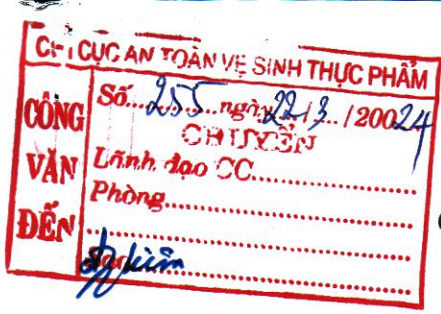 CHI CỤC AN TOÀN VỆ SINH THỰC PHẨM
CÔNG VĂN ĐẾN
Số...255...ngày 22/3.../20024
CHUYỂN
Lãnh đạo CC
Phòng